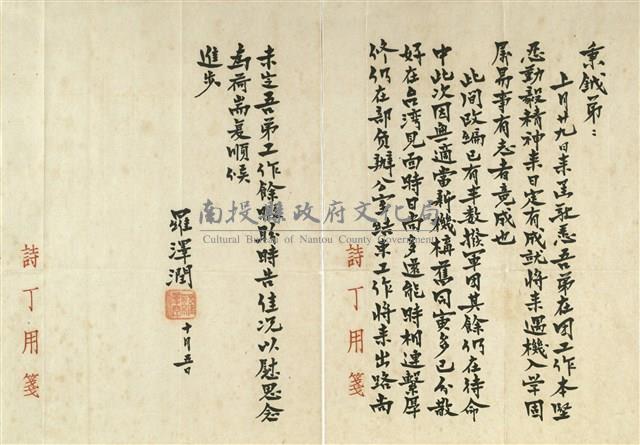 秉鉞弟：
上月廿九日来函敬悉吾弟在団工作本堅
忍勤毅精神来日定有成就将来遇機入学固
屬易事有志者竟成也
此间改编已有半数撥軍団其餘仍在待命
中此次因無適當新機構舊同寅多已分散
好在台湾見面時日尚多還能時相連繫厚
修仍在部负辦公室结束工作将来出路尚
未定吾弟工作餘暇盼時告佳况以慰思念
為荷耑复順候
進步
羅澤潤
十月五日
詩丁用箋
詩丁用箋
南投縣政府文化局
Cultural Bureau of Nantou County Government